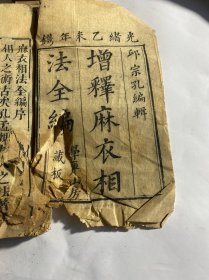 光緒乙未年鐫
邱宗孔編輯
增釋麻衣相
法全編
藏板
麻衣相法全編序
相人之術古矣孔孟